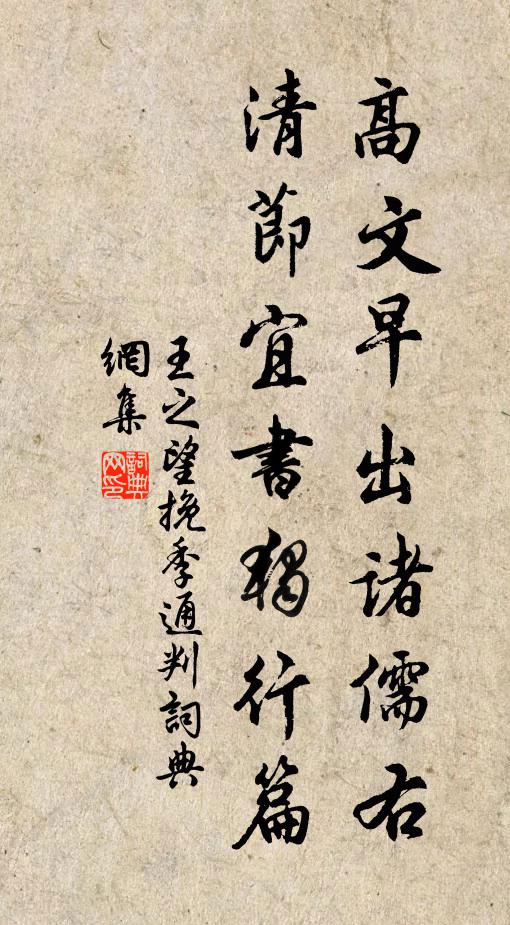 高文早出諸儒右
清節宜書獨行篇
王之望挽季通判詞典
網集
詞典網印